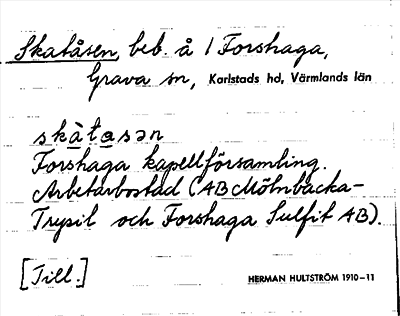 Skatåsen, beb. å 1 Forshaga,
Grava sn, Karlstads hd, Värmlands län
skàtɑsən
Forshaga kapellförsamling.
Arbetarbostad (AB Mölnbacka-
Trysil och Forshaga Sulfit AB).
[Till.]
HERMAN HULTSTRÖM 1910–11